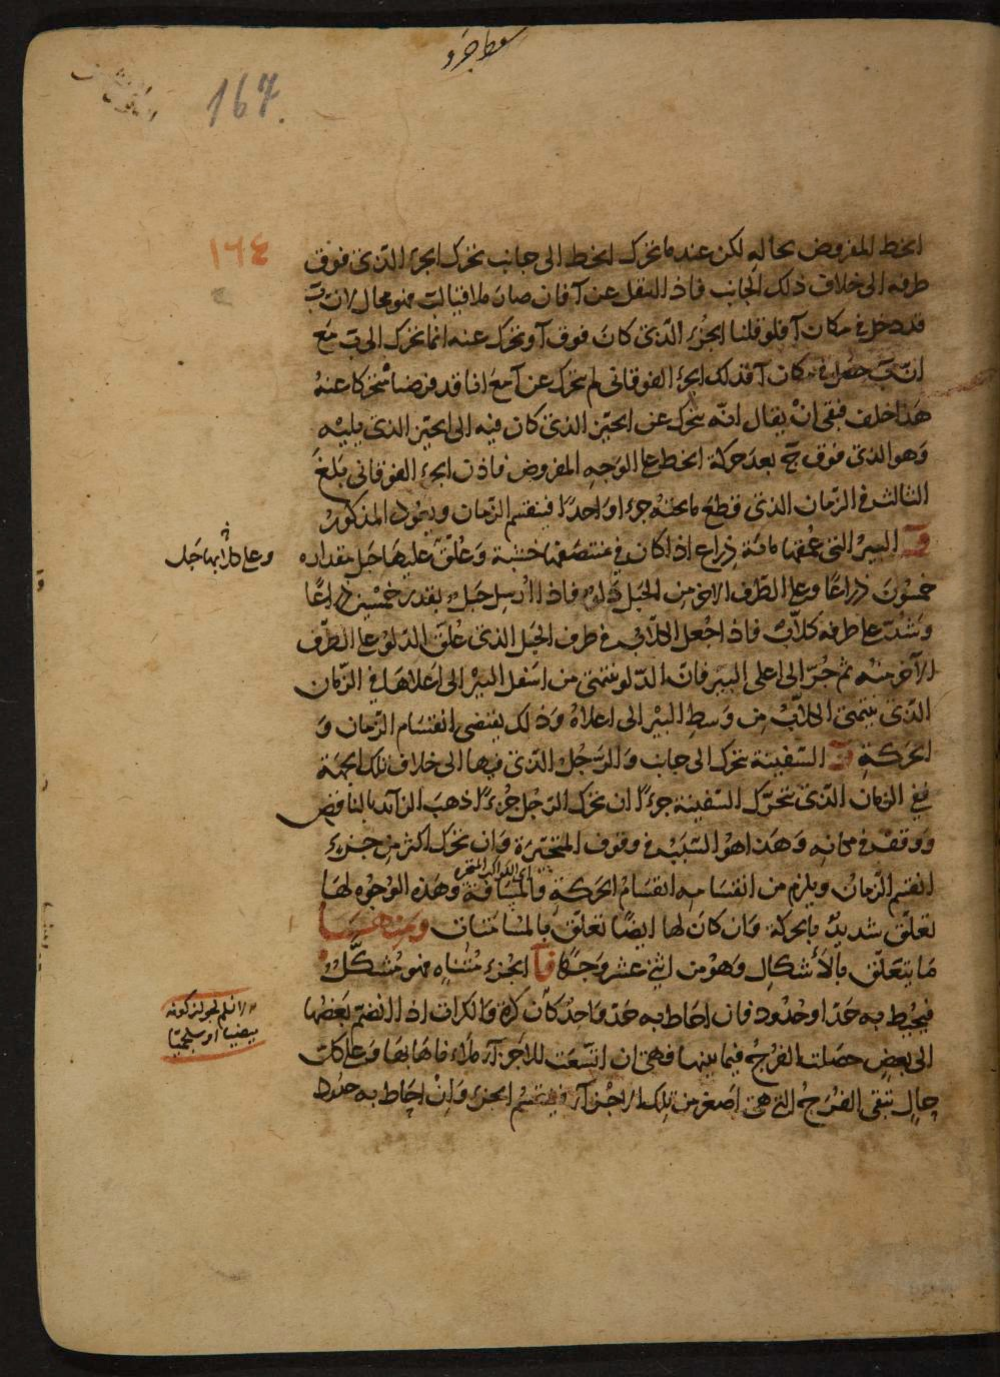 سقط جزو
167.
١٦٤
الخط المفروض بحاله لكن عند ما تحرك الخط الى جانب تحرك الجزء الذى فوق
طرفه الى خلاف ذلك الجانب فاذا انتقل عن آ فان صار ملاقيا لـ ب فهو محال لان ب
قد دخل فى مكان آ فلو قلنا الجزء الذى كان فوق آ وتحرك عنه انما تحرك الى ب مع
ان ب حصل فى مكان آ فذلك الجزء الفوقانى لم يتحرك عن آ مع انا قد فرضنا متحركا عنه
هذا خلف فبقى ان يقال انه تحرك عن الحيز الذى كان فيه الى الحيز الذى يليه
وهو الذى فوق ج بعد حركة الخط على الوجه المفروض فاذن الجزء الفوقانى بلغ
الثالث فى الزمان الذى قطع ما تحته جزءا واحدا فينقسم الزمان ويعود المذكور
و البير التى عمقها مائة ذراع اذا كان فى منتصفها خشبة وعلق عليها حبل مقداره
خمسون ذراعا وعلى الطرف الاخر من الحبل دلو فاذا ارسل حبل بقدر خمسين ذراعا
وشد على طرفه كلاب فاذا جعل الكلاب فى طرف الحبل الذى علق الدلو على الطرف
الآخر منه ثم جر الى اعلى البير فان الدلو ينتهى من اسفل البير الى اعلاها فى الزمان
الذى ينتهى الكلاب من وسط البير الى اعلاه وذلك يقتضى انقسام الزمان و
الحركة ز السفينة تتحرك الى جانب والرجل الذى فيها الى خلاف تلك الجهة
ففى الزمان الذى تتحرك السفينة جزءا ان تحرك الرجل جزءا ذهب الزائد بالناقص
ووقف فى مكانه وهذا هو السبب فى وقوف المتحيرة وان تحرك اكثر من جزء
اى الكواكب المتحيرة
انقسم الزمان ويلزم من انقسامه انقسام الحركة والمسافة وهذه الوجوه لها
تعلق شديد بالحركة وان كان لها ايضا تعلق بالمسامتات ومنها
ما يتعلق بالأشكال وهو من اثنى عشر وجها آ الجزء متناه فهو مشكل
فيحيط به حد او حدود فان احاط به حد واحد كان كرة والكرات اذا انضم بعضها
الى بعض حصلت الفرج فيما بينها فهى ان اتسعت للاجزآء ملأناها بها وعلى كل
حال تبقى الفرج التى هى اصغر من تلك الاجزآء فينقسم الجزء وان احاط به حدود
وعلى كل ايهما حبل
لا نسلم لجواز كونه
بيضيا او سلجميا